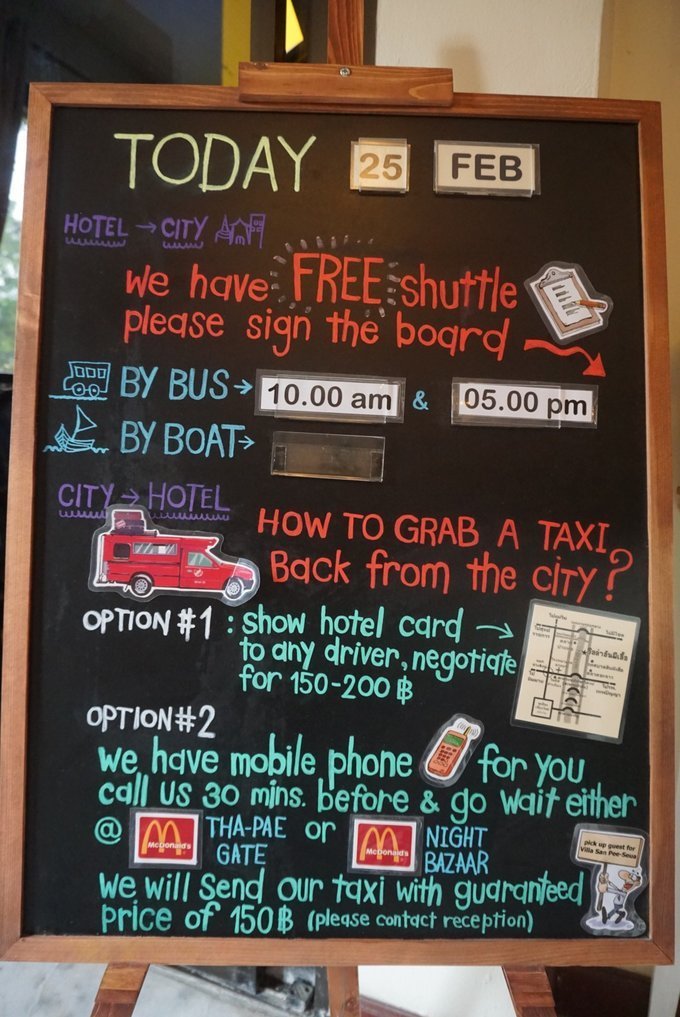 TODAY 25 FEB
HOTEL → CITY
We have FREE shuttle
please sign the board
BY BUS → 10.00 am & 05.00 pm
BY BOAT →
CITY → HOTEL
HOW TO GRAB A TAXI
Back from the city?
OPTION #1 : show hotel card →
to any driver, negotiate
for 150-200 ฿
OPTION #2
We have mobile phone for you
call us 30 mins. before & go wait either
@ McDonald's THA-PAE GATE or McDonald's NIGHT BAZAAR
pick up guest for
Villa San Pee-Seua
We will send our taxi with guaranteed
price of 150 ฿ (please contact reception)